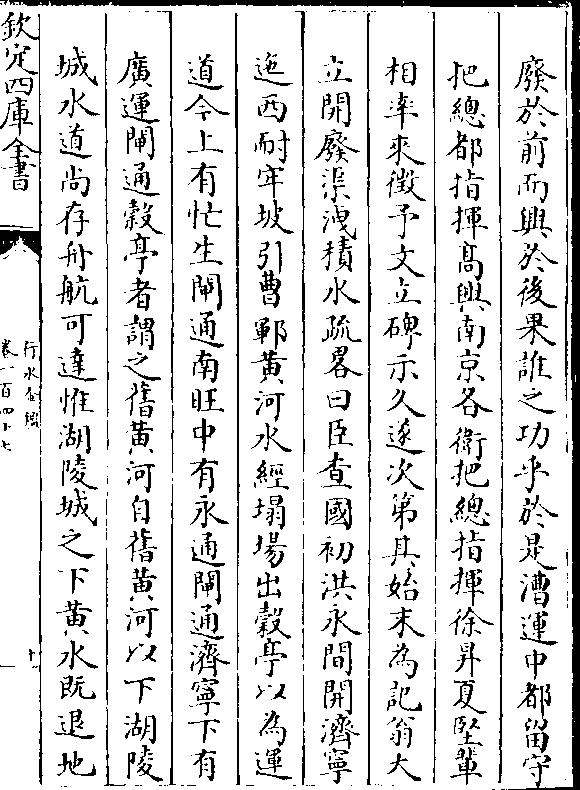 廢於前而興於後果誰之功乎於是漕運中都留守
把總都指揮髙興南京各衛把總指揮徐昇夏堅輩
相率來徴予文立碑示久遂次第其始末為記翁大
立開廢渠洩積水疏畧曰臣查國初洪永間開濟寧
迤西耐牢坡引曹鄆黄河水經塌場出榖亭以為運
道今上有忙生閘通南旺中有永通閘通濟寧下有
廣運閘通榖亭者謂之舊黄河自舊黄河以下湖陵
城水道尚存舟航可達惟湖陵城之下黄水既退地
欽定四庫全書
行水金鑑
卷一百四十七
十